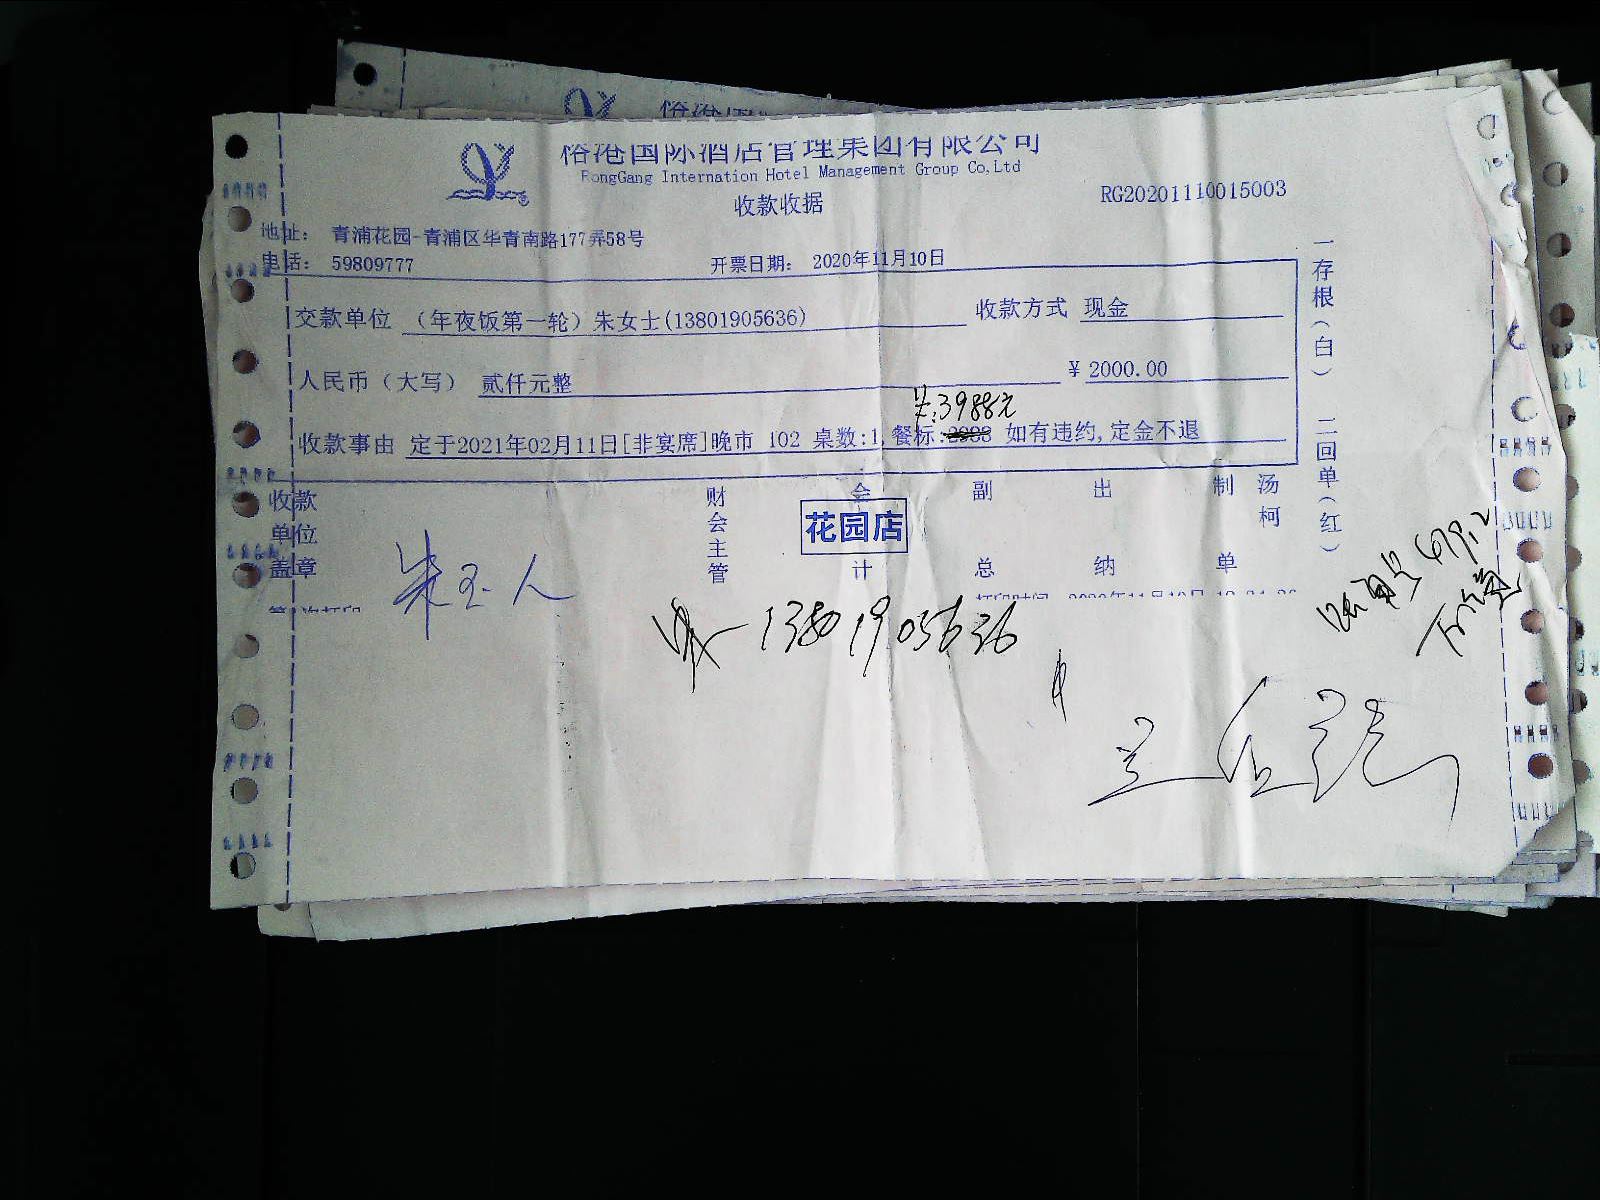 俗港国际酒店管理集团有限公司
RongGang Internation Hotel Management Group Co,Ltd
收款收据
RG20201110015003
地址： 青浦花园-青浦区华青南路177弄58号
电话： 59809777
开票日期： 2020年11月10日
交款单位 （年夜饭第一轮）朱女士(13801905636)
收款方式 现金
人民币（大写） 贰仟元整
¥ 2000.00
¥:3988元
收款事由 定于2021年02月11日[非宴席]晚市 102 桌数:1,餐标: 如有违约,定金不退
一存根（白） 二回单（红）
收款单位盖章
财会主管
会计
副总
出纳
制单
汤柯
花园店
朱玉人
朱 13801905636